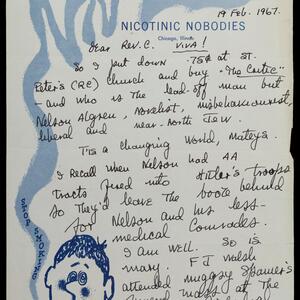 19 Feb. 1967.
NICOTINIC NOBODIES
Chicago, Illinois
Dear Rev. C. VIVA!
So I put down 75¢ at ST.
Peter's (RC) Church and buy "The Critic"
- and who is the lead-off man but
Nelson Algren, novelist, misbehaviourist,
liberal and near-North JEW.
T'is a changing world, Mateys.
I recall when Nelson had AA
tracts fired into Hitler's troops
so They'd leave the booze behind
for Nelson and his less-
medical Comrades.
I AM WELL. SO is
Mary. F J Walsh
attended Muggsy Spanier's
funeral mass at The
STOP SMOKING